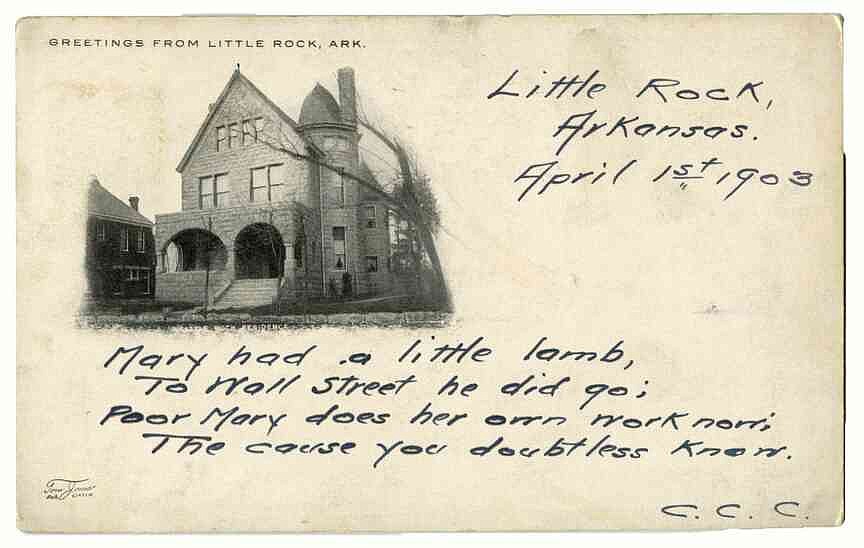 GREETINGS FROM LITTLE ROCK, ARK.
Little Rock,
Arkansas.
April 1st, 1903
RESIDENCE
Mary had a little lamb,
To Wall Street he did go;
Poor Mary does her own work now;
The cause you doubtless know.
C. C. C.